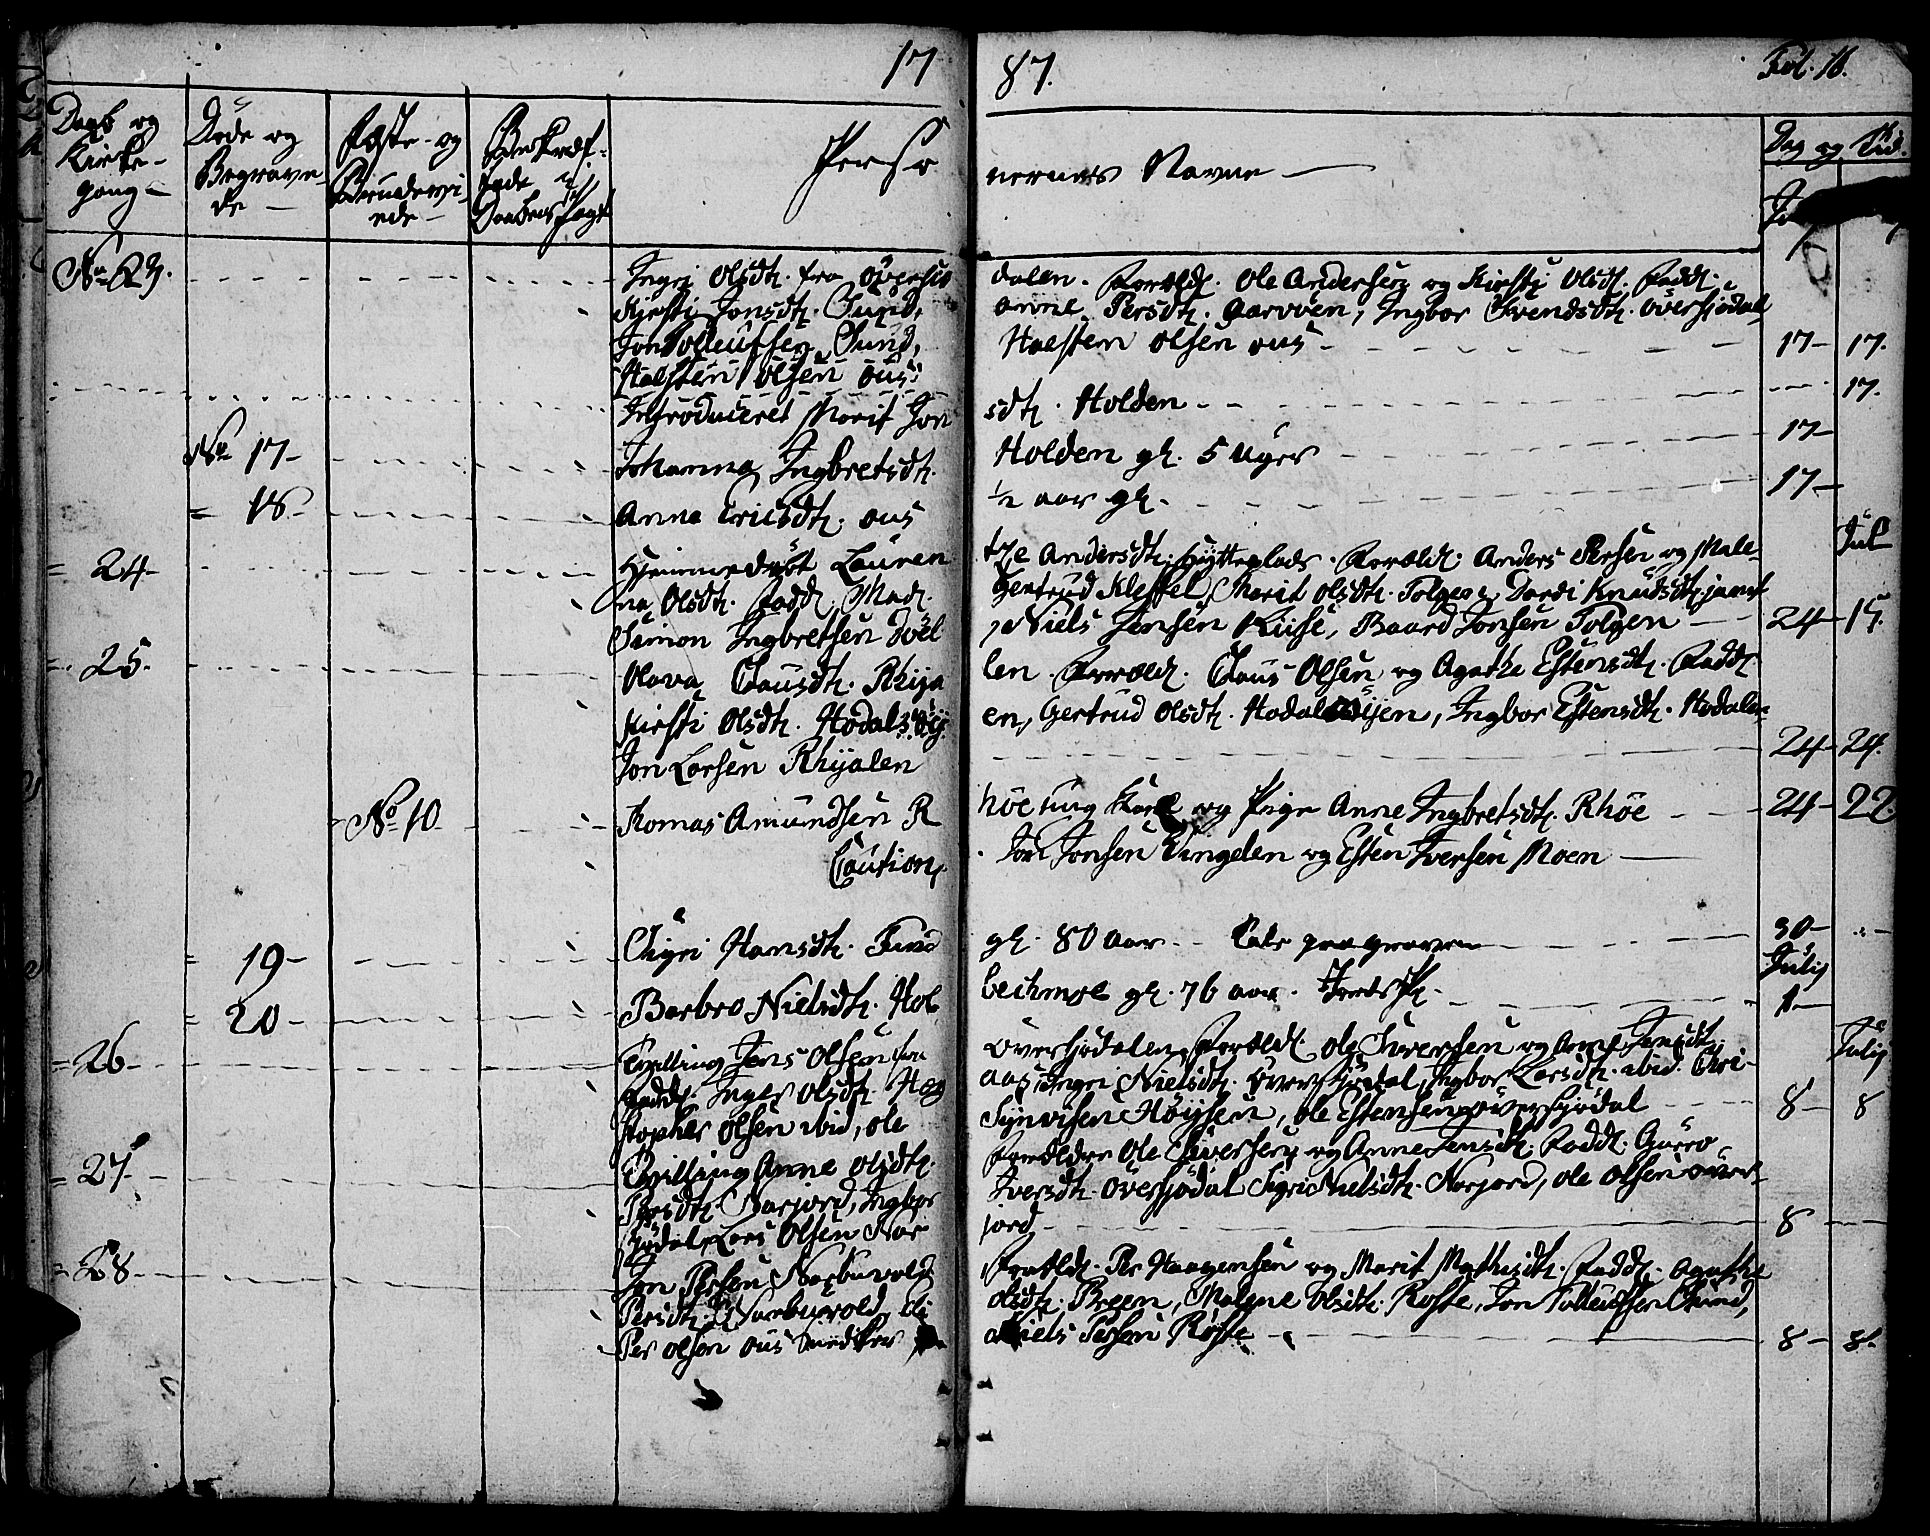 1787. Fol. 16.
Daab og Kirke-gang
Døde og Begrave-de
Fæste- og Brudevi-ede
Bekræf-tede i Daabens Pagt
Personernes Navne
Dag og Tid.
No 23. Ingri Olsdtr. fra Øversiødalen. Forældr. Ole Andersen og Kirsti Olsdtr. Fadd.
Kirsti Jonsdtr. Sund, Anne Persdtr. Aarvoen, Ingbor Svendsdtr. Øversiødal,
Jon Tolleufsen Sund, Halsten Olsen aus
Halsten Olsen aus 17 17.
Introduceret Marit Jonsdtr. Holden 17.
No 17 Johanna Ingbretsdtr. Holden gl. 5 Uger 17
18 Anna Ericsdtr. aus ½ aar gl. 17
24 Hjemmedøbt Laurentze Andersdtr. Hytteplads. Forældr. Anders Persen og Male- Jul
na Olsdtr. Fadd. Mad. Gertrud Kleffel, Marit Olsdtr. Tolgen, Dordi Knudsdtr. jamt
Simon Ingbretsen Niels Jensen Kiise, Baard Jonsen Tolgen 24 15.
25. Olava Clausdtr. Rhijalen. Forældr. Claus Olsen og Agathe Estensdtr. Fadd.
Kirsti Olsdtr. Hodals en, Gertrud Olsdtr. Hodals , Ingbor Estensdtr. Hodalen
Jon Larsen Rhijalen 24 24.
No 10 Tomas Amundsen Rhöe ung Karl og Pige Anne Ingbretsdtr. Rhöe 24 22
Caution, Jon Jonsen Vingelen og Esten Iversen Moen
19 Sigri Hansdtr. Sund gl. 80 Aar 30
Julij
20 Barbro Nielsdtr. Holbechmoe gl. 76 aar. 1
26 Tvilling Jens Olsen fra Øversjødalen, Forældr. Ole Iversen og Anne Jensdtr. Julij
Fadd. Inger Olsdtr. aas, Ingri Nielsdtr. Øversjødal, Ingbor Larsdtr. ibid. Chri-
stopher Olsen ibid, Ole Hôiisen, Ole Estensen Øversjødal 8 8
27. Tvilling Anne Olsdtr. Forældre Ole Iversen og Anne Jensdtr. Fadd. Guro
Persdtr. Narjord, Ingbor Iversdtr. Øversjødal Sigri Nielsdtr. Narjord, Ole Olsen Øver-
sjødal, Lars Olsen Narjord 8
28 Jon Persen Narbuvold Forældr. Per Haagensen og Marit Mathisdtr. Fadd. Agathe
Persdtr. Narbuvold, Olsdtr. Breen, Malene Olsdtr. Røste, Jon Tolleufsen Sund,
Per Olsen aus Niels Persen Røste 8 8.